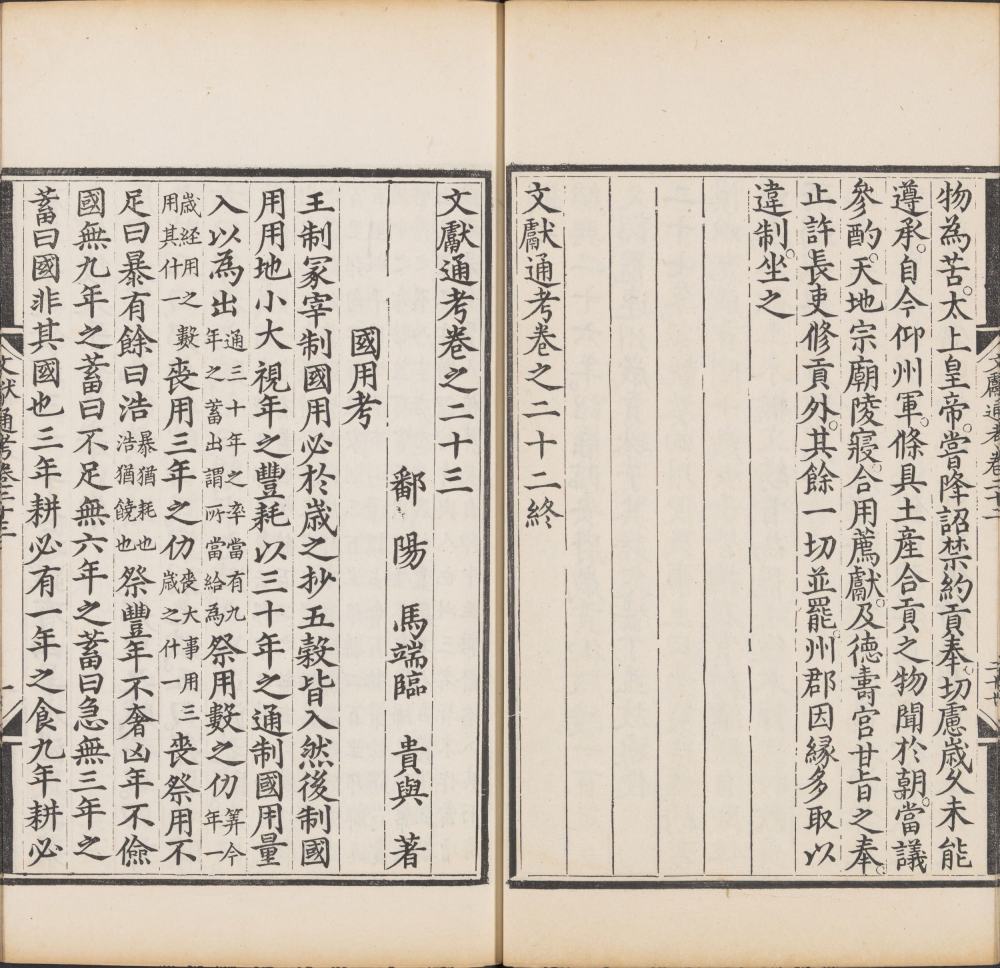 物為苦。太上皇帝。嘗降詔禁約貢奉。切慮歲久未能
遵承。自今仰州軍。條具土産合貢之物聞於朝。當議
參酌。天地宗廟陵寢。合用薦獻。及德壽宮甘旨之奉。
止許長吏修貢外。其餘一切並罷。州郡因縁多取以
違制。坐之
文獻通考卷之二十二終
文獻通考卷之二十三
鄱陽 馬端臨 貴與 著
國用考
王制冢宰制國用必於歲之抄五穀皆入然後制國
用用地小大視年之豐耗以三十年之通制國用量
入以為出通三十年之率當有九年之蓄出謂所當給為祭用數之仂筭今年一
歲經用之數用其什一喪用三年之仂喪大事用三歲之什一喪祭用不
足曰暴有餘曰浩暴猶耗也浩猶饒也祭豐年不奢凶年不儉
國無九年之蓄曰不足無六年之蓄曰急無三年之
蓄曰國非其國也三年耕必有一年之食九年耕必
文獻通考卷二十三
一